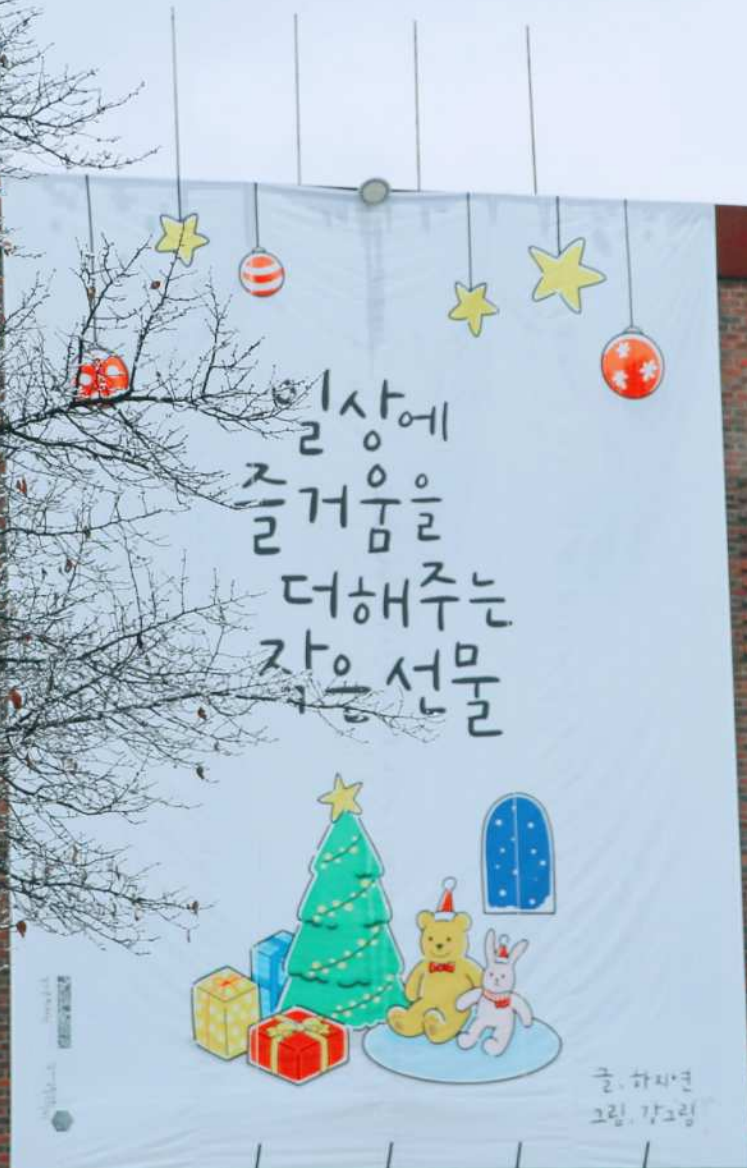 일상에
즐거움을
더해주는
작은 선물
글. 하지연
그림. 강그림